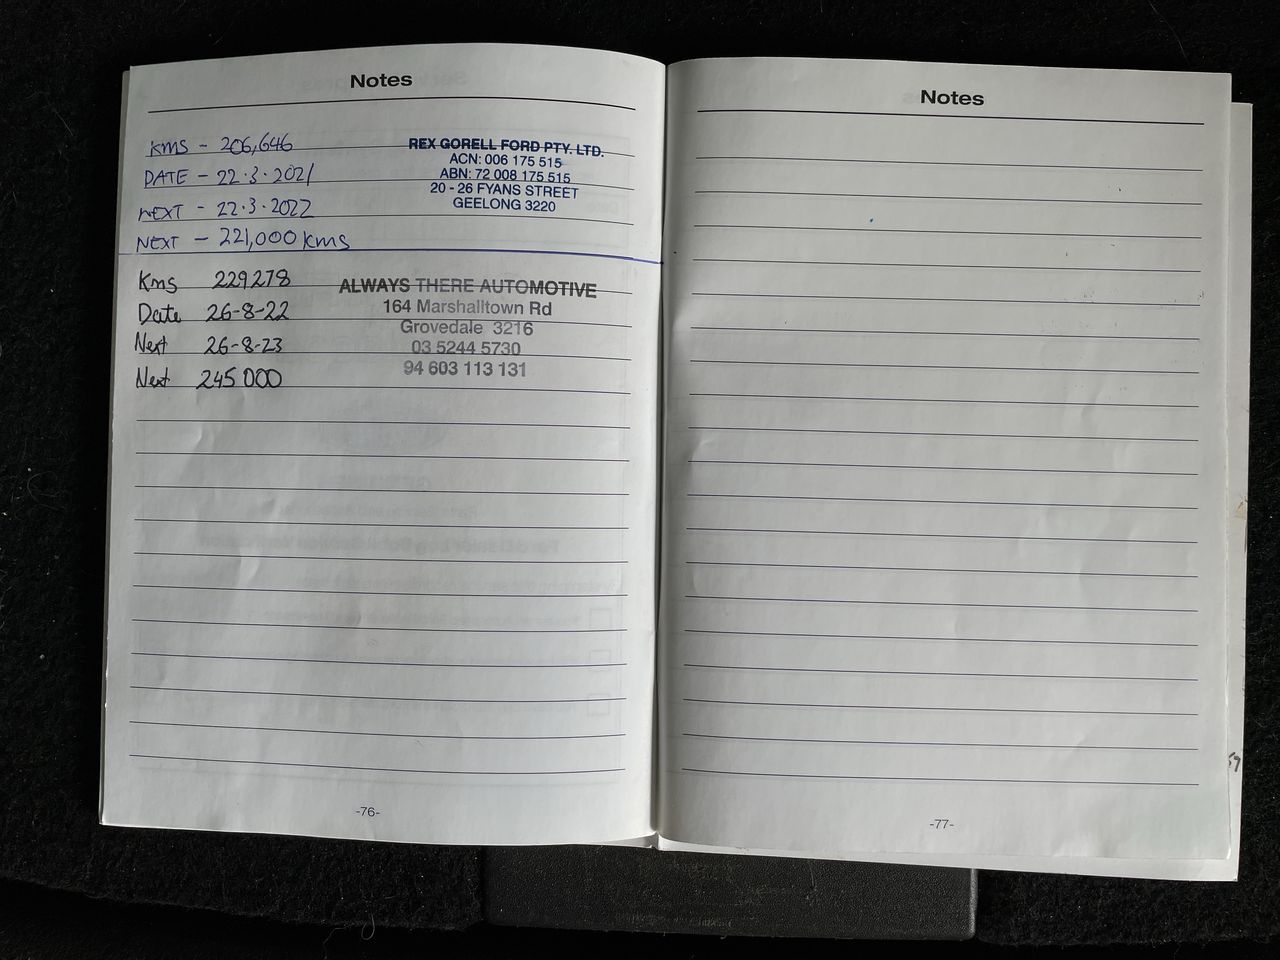 Notes
KMS - 206,646
DATE - 22.3.2021
NEXT - 22.3.2022
NEXT - 221,000 KMS
REX GORELL FORD PTY. LTD.
ACN: 006 175 515
ABN: 72 008 175 515
20 - 26 FYANS STREET
GEELONG 3220
Kms 229278
Date 26-8-22
Next 26-8-23
Next 245 000
ALWAYS THERE AUTOMOTIVE
164 Marshalltown Rd
Grovedale 3216
03 5244 5730
94 603 113 131
-76-
Notes
-77-